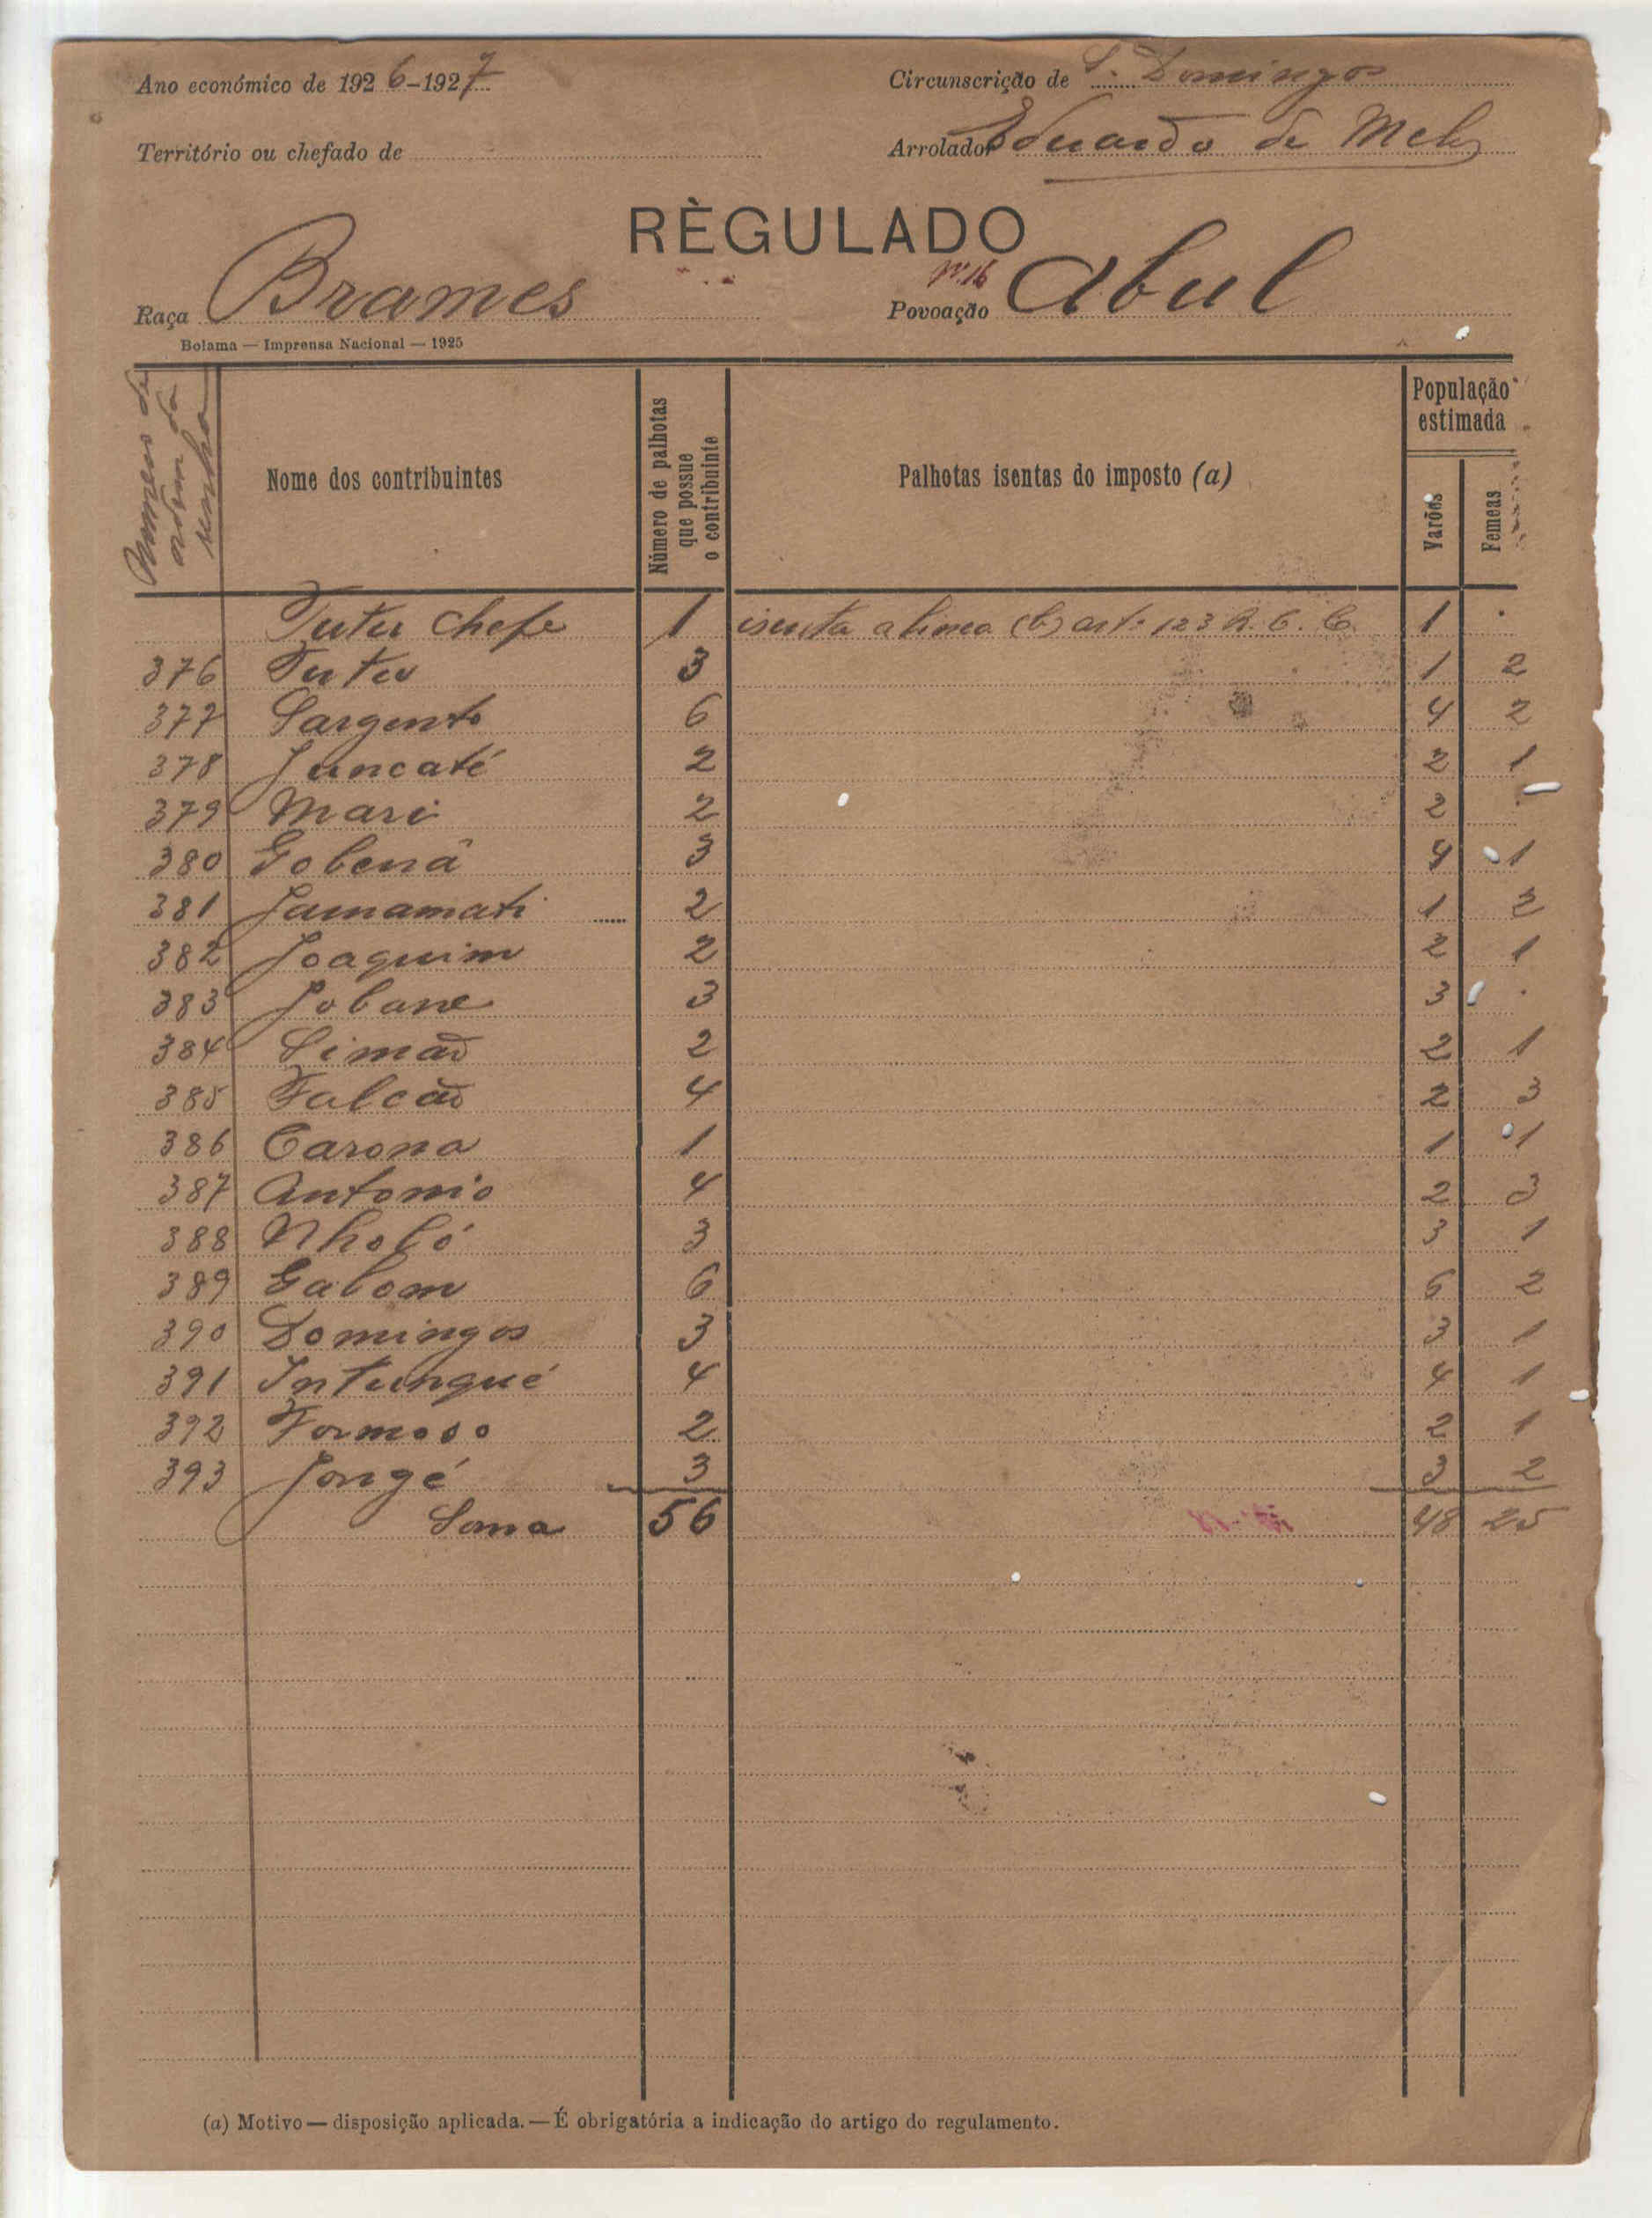 Ano económico de 1926-1927
Circunscrição de S. Domingos
Território ou chefado de
Arrolador Eduardo de Melo
RÈGULADO
Raça Brames
Nº 16
Povoação Abul
Bolama — Imprensa Nacional — 1925
Numero da
senha
Nome dos contribuintes
Número de palhotas
que possue
o contribuinte
Palhotas isentas do imposto (a)
População
estimada
Varões
Femeas
Tutu chefe 1 isenta alinea (b) art. 123 R.C.C. 1 .
376 Tutu 3 1 2
377 Sargento 6 4 2
378 Juncaté 2 2 1
379 Mari 2 2 .
380 Gobenâ 3 4 1
381 Jamamati 2 1 2
382 Joaquim 2 2 1
383 Jobane 3 3 .
384 Simão 2 2 1
385 Falcão 4 2 3
386 Carona 1 1 1
387 Antonio 4 2 3
388 Nholó 3 3 1
389 Gabom 6 6 2
390 Domingos 3 3 1
391 Intungué 4 4 1
392 Formoso 2 2 1
393 Jongé 3 3 2
Soma 56 48 25
(a) Motivo — disposição aplicada. — É obrigatória a indicação do artigo do regulamento.